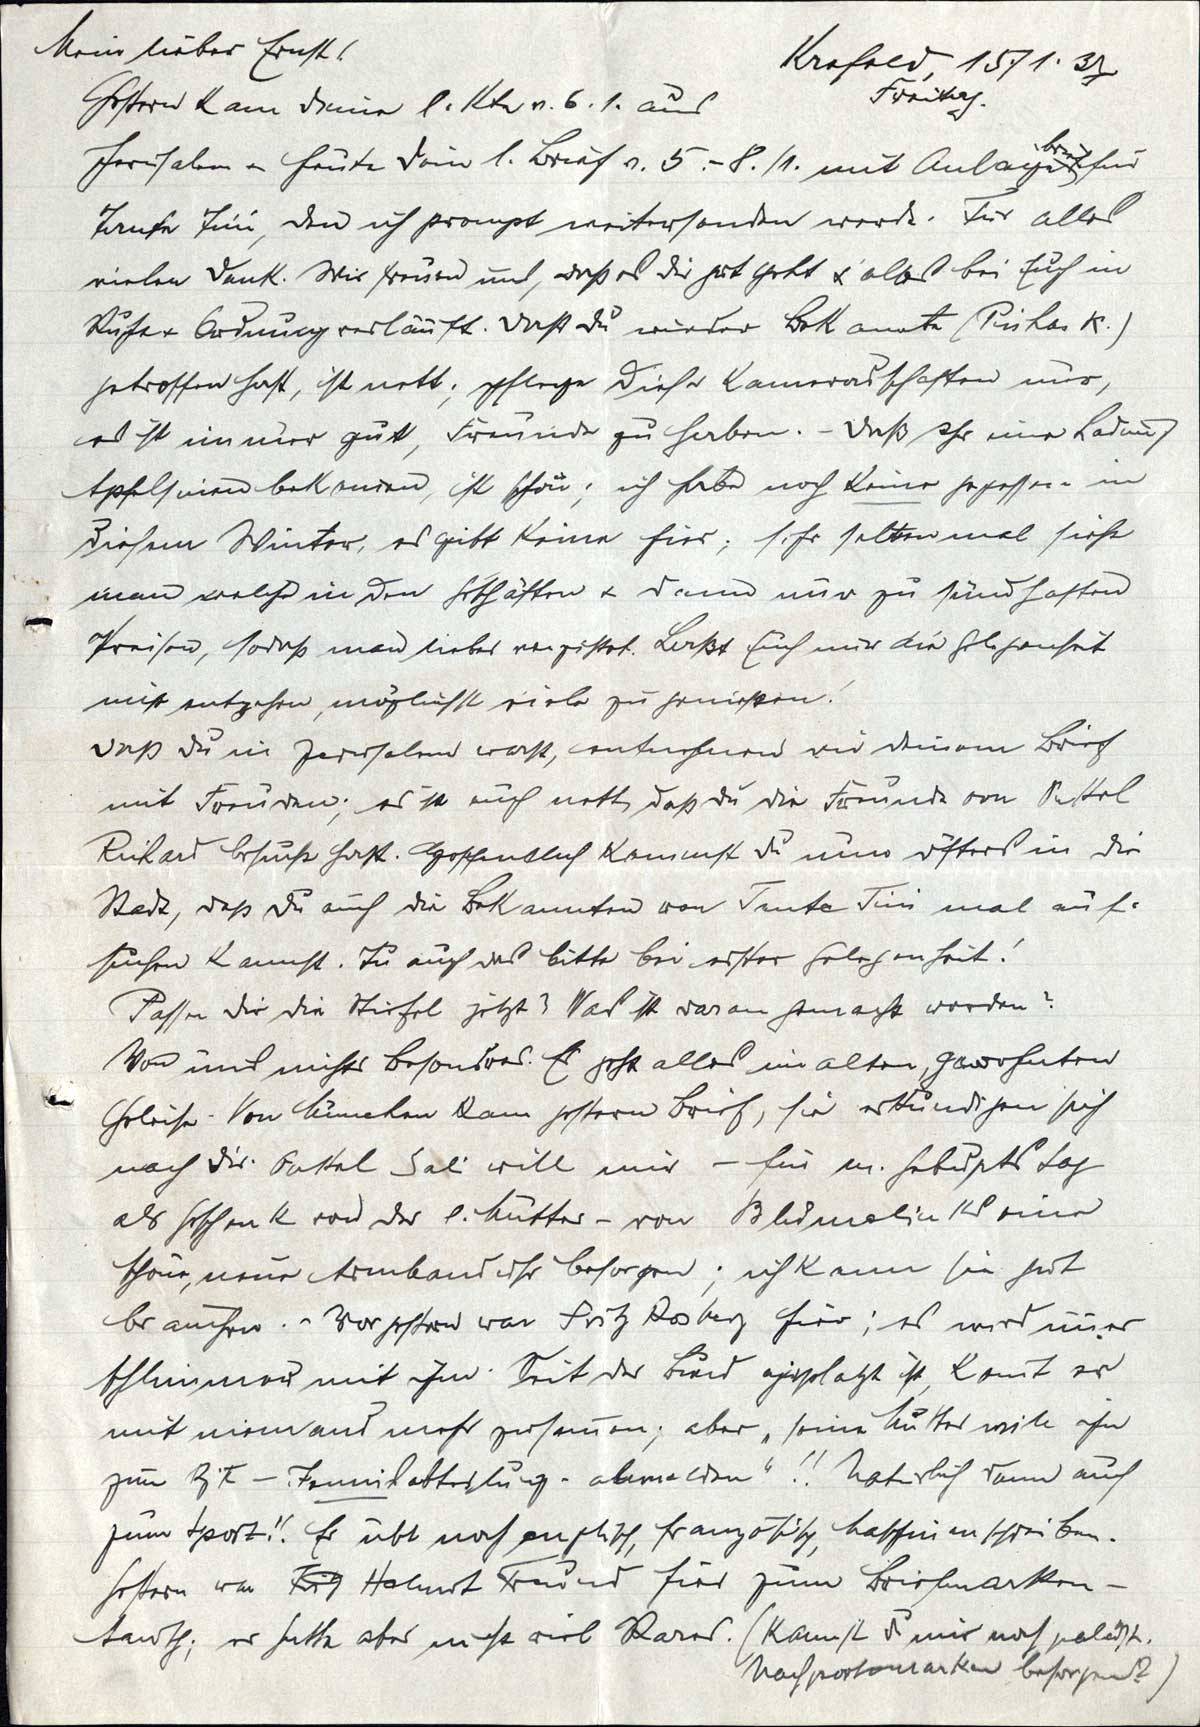 Mein lieber Ernst!
Krefeld, 15/1. 37
Freitag.
Gestern kam deine l. Kte v. 6.1. aus
Jerusalem u. heute dein l. Brief v. 5.-8./1. mit Anlagebrief für
Tante Tini, den ich prompt weitersenden werde. Für alles
vielen Dank. Wir freuen uns, daß es dir gut geht & alles bei Euch in
Ruhe & Ordnung verläuft. Daß du wieder Bekannte (Pinhas K.)
getroffen hast, ist nett; pflege diese Kameradschaften nur,
es ist immer gut, Freunde zu haben. - Daß Ihr eine Ladung
Apfelsinen bekamen, ist schön; ich habe noch keine gegessen in
diesem Winter, es gibt keine hier; sehr selten mal sieht
man welche in den Geschäften & dann nur zu sündhaften
Preisen, sodaß man lieber verzichtet. Laßt Euch nur die Gelegenheit
nicht entgehen, möglichst viele zu geniessen!
Daß du in Jerusalem warst, entnehmen wir deinem Brief
mit Freuden; es ist auch nett, daß du die Freunde von Onkel
Richard besucht hast. Hoffentlich kommst du nun öfters in die
Stadt, daß du auch die Bekannten von Tante Tini mal auf-
suchen kannst. Tu auch das bitte bei erster Gelegenheit!
Passen dir die Stiefel jetzt? Was ist daran gemacht worden?
Von uns nichts Besonderes. Es geht alles im alten, gewohnten
Geleise. Von München kam gestern Brief, sie erkundigen sich
nach dir. Onkel Sali will mir - für m. Geburtstag
als Geschenk von der l. Mutter - von eine
schöne, neue Armbanduhr besorgen; ich kann sie gut
brauchen. - Vorgestern war Fritz hier; es wird immer
schlimmer mit ihm. Seit der Bund aufgeplatzt ist, kommt er
mit niemand mehr zusammen; aber „seine Mutter will ihn
zum - Tennisabteilung - abmelden“!! Natürlich dann auch
zum Sport!! Er übt noch englisch, französisch, Maschinenschreiben.
Gestern war Helmut Freund hier zum Briefmarken-
tausch; er hatte aber nicht viel Rares. (Kannst du mir noch paläst.
Nachportomarken besorgen?)